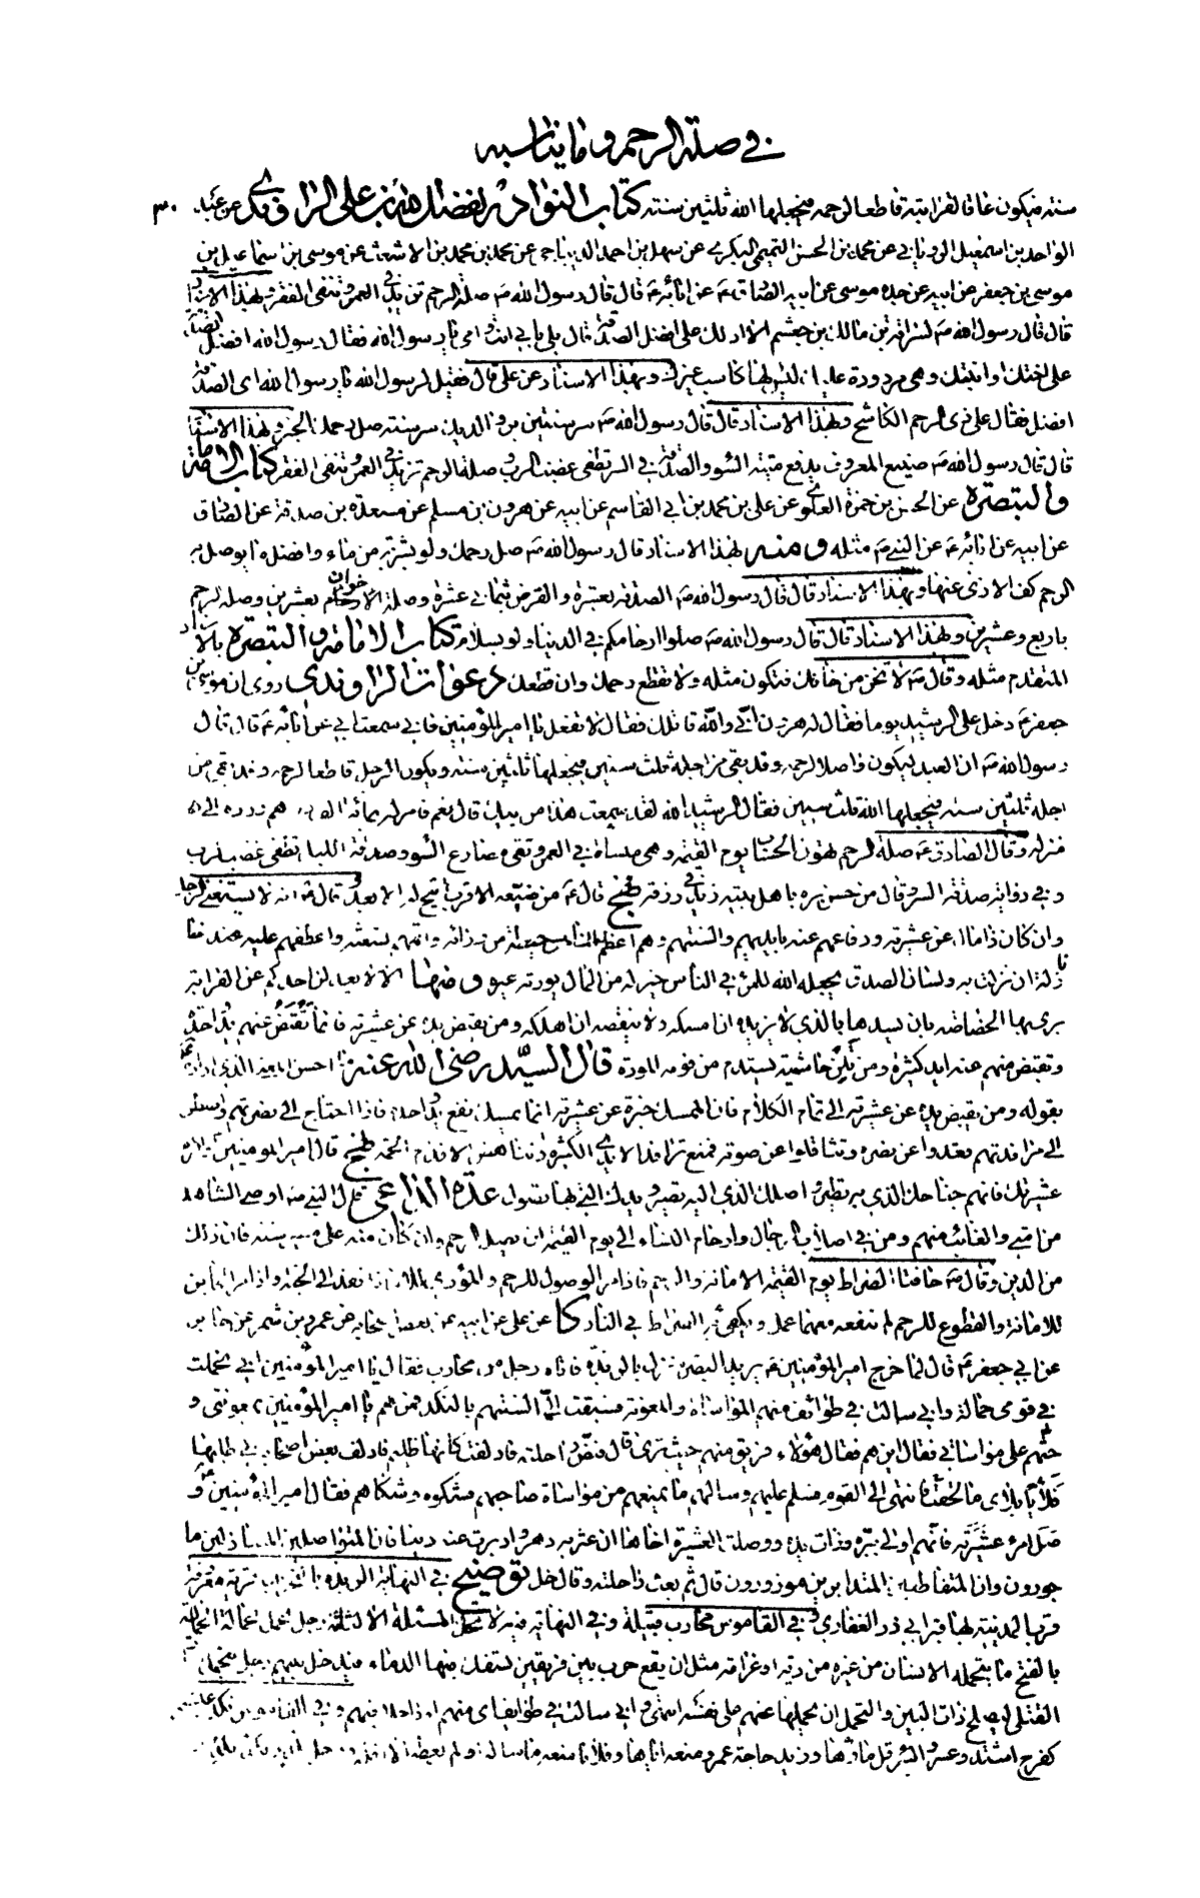 في صلة الرحم وما يناسبه
سنته فيكون عاقا لقرابته قاطعا لرحمه فيجعلها الله ثلثين سنته كتاب النوادر لفضل الله بن علي الراوندي عن عبد
الواحد بن اسمعيل الروياني عن محمد بن الحسن التميمي البكري عن سهل بن احمد الديباجي عن محمد بن محمد بن الاشعث عن موسى بن اسماعيل بن
موسى بن جعفر عن ابيه عن جده موسى عن ابيه الصادق عن آبائه قال قال رسول الله صلة الرحم تزيد في العمر وتنفي الفقر وبهذا الاسناد
قال قال رسول الله لسراقة بن مالك بن جعشم الا ادلك على افضل الصدقة قال بلى بابي انت وامي يا رسول الله فقال رسول الله افضل الصدقة
على اختك او ابنتك وهي مردودة عليك ليس لها كاسب غيرك وبهذا الاسناد عن علي قال فقيل لرسول الله يا رسول الله اي الصدقة
افضل فقال على ذي الرحم الكاشح وبهذا الاسناد قال قال رسول الله سر سنتين بر والديك سر سنته صل رحمك الخبر وبهذا الاسناد
قال قال رسول الله صنيع المعروف يدفع ميتة السوء والصدقة في السر تطفئ غضب الرب وصلة الرحم تزيد في العمر وتنفي الفقر كتاب الامامة
والتبصرة عن الحسن بن حمزة العلوي عن علي بن محمد بن ابي القاسم عن ابيه عن هرون بن مسلم عن مسعدة بن صدقة عن الصادق
عن ابيه عن آبائه عن النبي مثله ومنه بهذا الاسناد قال رسول الله صل رحمك ولو بشربة من ماء وافضل ما يوصل به
الرحم كف الاذى عنها وبهذا الاسناد قال قال رسول الله الصدقة بعشرة والقرض بثماني عشرة وصلة الاخوان بعشرين وصلة الرحم
باربع وعشرين وبهذا الاسناد قال قال رسول الله صلوا ارحامكم في الدنيا ولو بسلام كتاب الامامة والتبصرة بالاسناد
المتقدم مثله وقال لا تخن من خانك فتكون مثله ولا تقطع رحمك وان قطعك دعوات الراوندي روي ان موسى بن
جعفر دخل على الرشيد يوما فقال له هرون اني والله قاتلك فقال لا تفعل يا امير المؤمنين فاني سمعت ابي عن آبائه قال قال
رسول الله ان العبد ليكون واصلا لرحمه وقد بقي من اجله ثلث سنين فيجعلها ثلثين سنة ويكون الرجل قاطعا لرحمه وقد بقي من
اجله ثلثين سنه فيجعلها الله ثلث سنين فقال الرشيد الله لقد سمعت هذا من ابيك قال نعم فامر له بمائة الف ورده الى
منزله وقال الصادق صلة الرحم تهون الحساب يوم القيمة وهي منساة في العمر وتقي مصارع السوء وصدقة الليل تطفئ غضب الرب
وفي رواية صدقة السر وقال من حسن بره باهل بيته زيد في رزقه نهج قال من ضيعه الاقرب اتيح له الابعد وقال انه لا يستغني الرجل
وان كان ذا مال عن عشيرته ودفاعهم عنه بايديهم والسنتهم وهم اعظم الناس حيطة من ورائه والمهم لشعثه واعطفهم عليه عند
نازلة ان نزلت به ولسان الصدق يجعله الله للمرء في الناس خير له من المال يورثه غيره ومنها الا لا يعدلن احدكم عن القرابة
يرى بها الخصاصة بان يسدها بالذي لا يزيده ان امسكه ولا ينقصه ان اهلكه ومن يقبض يده عن عشيرته فانما تقبض عنهم يد واحدة
وتقبض منهم عنه ايد كثيرة ومن تلن حاشيته يستدم من قومه المودة قال السيد رضي الله عنه ما احسن المعنى الذي اراده
بقوله ومن يقبض يده عن عشيرته الى تمام الكلام فان الممسك خيره عن عشيرته انما يمسك نفع يد واحدة فاذا احتاج الى نصرتهم
الى مرافدتهم قعدوا عن نصره وتثاقلوا عن صوته فمنع ترافد الايدي الكثيرة وتناهض الاقدام الجمة نهج قال امير المؤمنين اكرم
عشيرتك فانهم جناحك الذي به تطير واصلك الذي اليه تصير ويدك التي بها تصول عدة الداعي قال النبي اوصي الشاهد
من امتي والغائب منهم ومن في اصلاب الرجال وارحام النساء الى يوم القيمة ان يصل الرحم وان كان منه على مسير سنة فان ذلك
من الدين وقال حافتا الصراط يوم القيمة الامانة والرحم فاذا مر الوصول للرحم والمؤدي للامانة نفذ الى الجنة واذا مر الخائن
للامانة والقطوع للرحم لم ينفعه معهما عمل ويكفئ به الصراط في النار كا عن علي عن ابيه عن بعض اصحابه عن عمرو بن شمر عن جابر
عن ابي جعفر قال لما خرج امير المؤمنين يريد البصرة نزل بالربذة فاتاه رجل من محارب فقال يا امير المؤمنين اني تحملت
في قومي حمالة واني سالت في طوائف منهم المواساة والمعونة فسبقت الي السنتهم بالنكد فمرهم يا امير المؤمنين بمعونتي و
حثهم على مواساتي فقال اين هم فقال هؤلاء فريق منهم حيث ترى قال فنص راحلته فادلفت كانها ظليم فادلف بعض اصحابه في طلبها
فلأيا بلأي ما لحقت فانتهى الى القوم فسلم عليهم وسالهم ما يمنعهم من مواساة صاحبهم فشكوه وشكاهم فقال امير المؤمنين
وصل امرؤ عشيرته فانهم اولى ببره وذات يده ووصلت العشيرة اخاها ان عثر به دهر وادبرت عنه دنيا فان المتواصلين المتباذلين ما
جورون وان المتقاطعين المتدابرين موزورون قال ثم بعث راحلته وقال حل توضيح في النهاية الربذة بالتحريك قرية معروفة
قرب المدينة بها قبر ابي ذر الغفاري وفي القاموس محارب قبيلة وفي النهاية فيه لا تحل المسئلة الا لثلثة رجل تحمل حمالة الحمالة
بالفتح ما يتحمله الانسان من غيره من دية او غرامة مثل ان يقع حرب بين فريقين تسفك فيها الدماء فيدخل بينهم رجل يتحمل ديات
القتلى ليصلح ذات البين والتحمل ان يحملها عنهم على نفسه انتهى واني سالت في طوائف اي منهم وفي القاموس نكد عيشهم
كفرح اشتد وعسر والبئر قل ماؤها وزيد حاجة عمرو منعه اياها وفلانا منعه ما ساله او لم يعطه الا